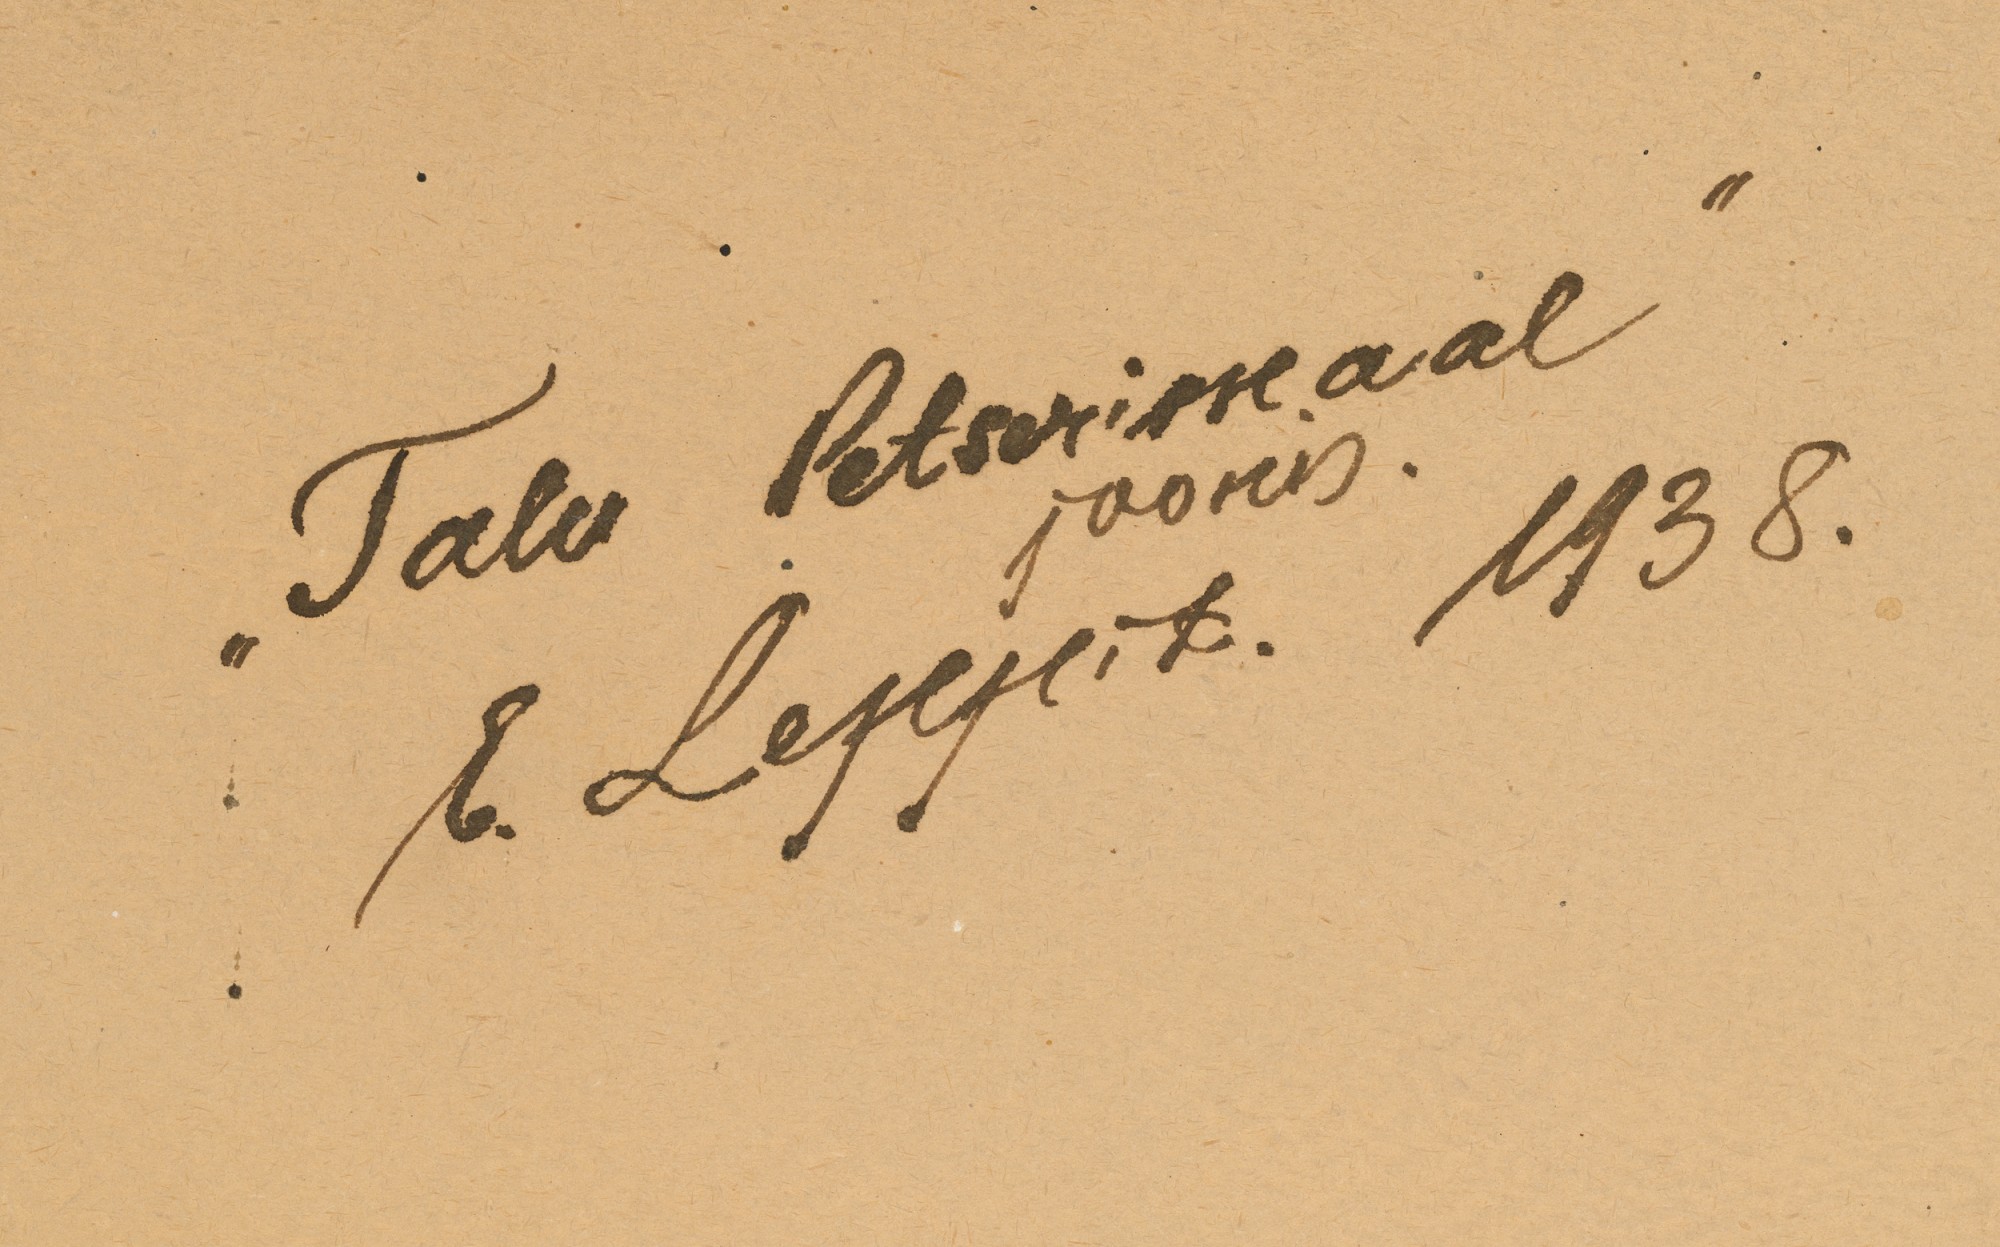 "Talu Petserimaal"
joonis.
E. Leppik. 1938.